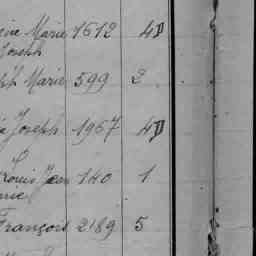 Marie 1612 4D
Joseph
Marie 599 2
Joseph 1967 4D
Louis Jean 140 1
François 2189 5